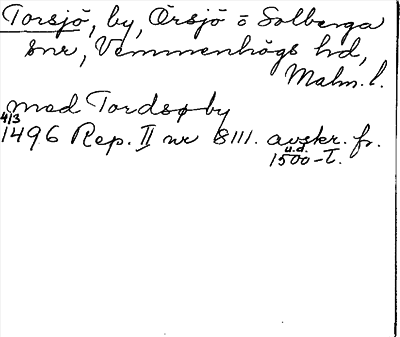 Torsjö, by, Örsjö o Solberga
snr, Vemmenhögs hd,
Malm. l.
med Tordsøby
4/3
1496 Rep. II nr 8111. avskr. fr.
u.d.
1500-t.